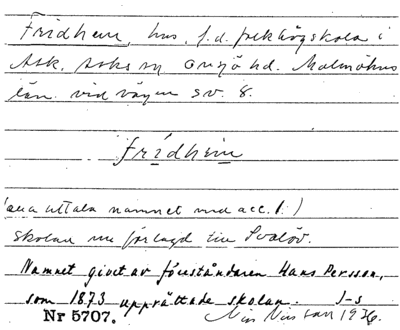 Fridhem, hus, f.d. folkhögskola i
Ask, Asks sn Onsjö hd. Malmöhus
län vid vägen sv. 8.
frídhem
(alla uttala namnet med acc. 1.)
skolan nu förlagd till Svalöv.
Namnet givet av föreståndaren Hans Persson,
som 1873 upprättade skolan. J-s
Nr 5707. Nils Nilsson 1936.